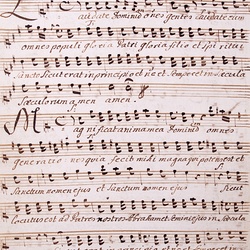 Laudate Dominum omnes gentes laudate eum
omnes populi gloria Patri gloria filio et Spiritui
Sancto Sicut erat in principio et nc et Semper et in Secula
Sæculorum amen amen.
Magnificat anima mea Dominum omnes
generationes quia fecit mihi magna qui potens est et
Sanctum nomen ejus et Sanctum nomen ejus Sicut
Locutus est ad Patres nostros Abraham et Semini ejus in Secula